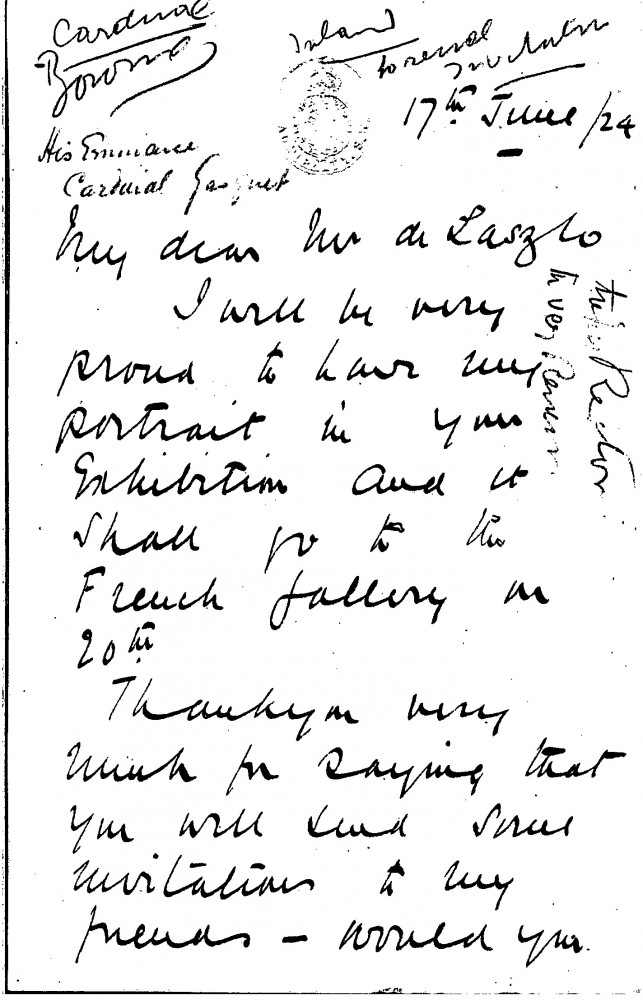 Cardinal
Bourne
His Eminence
Cardinal Gasquet
17th June/24
My dear Mr de Laszlo
I will be very
proud to have my
portrait in your
Exhibition and it
shall go to the
French Gallery on
20th
Thankyou very
much for saying that
you will send some
invitations to my
friends – would you
the Rector
the very Reverend